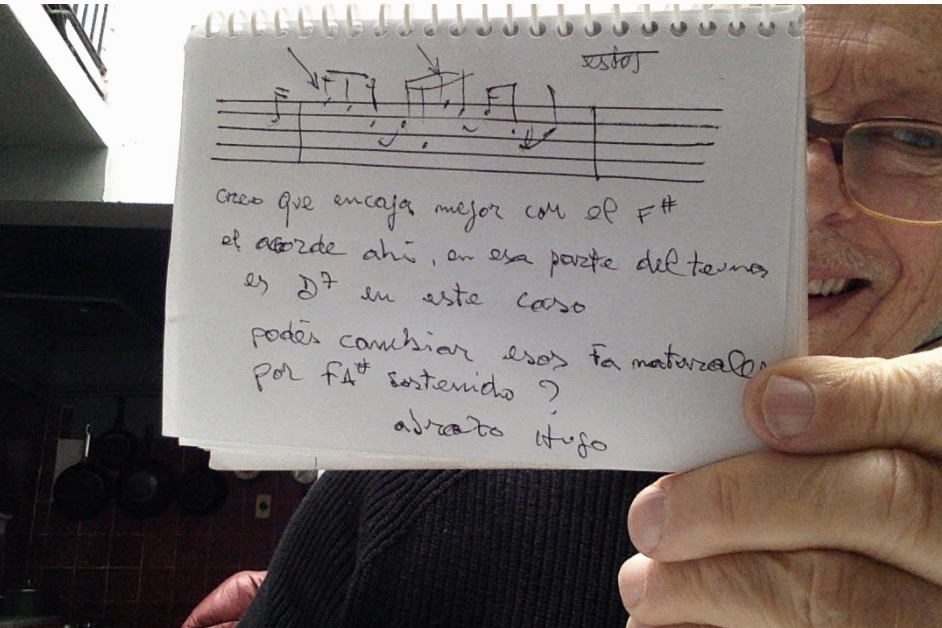 estos
creo que encaja mejor con el F#
el acorde ahí, en esa parte del tema
es D7 en este caso
podés cambiar esos Fa naturales
por FA# sostenido ?
abrazo Hugo